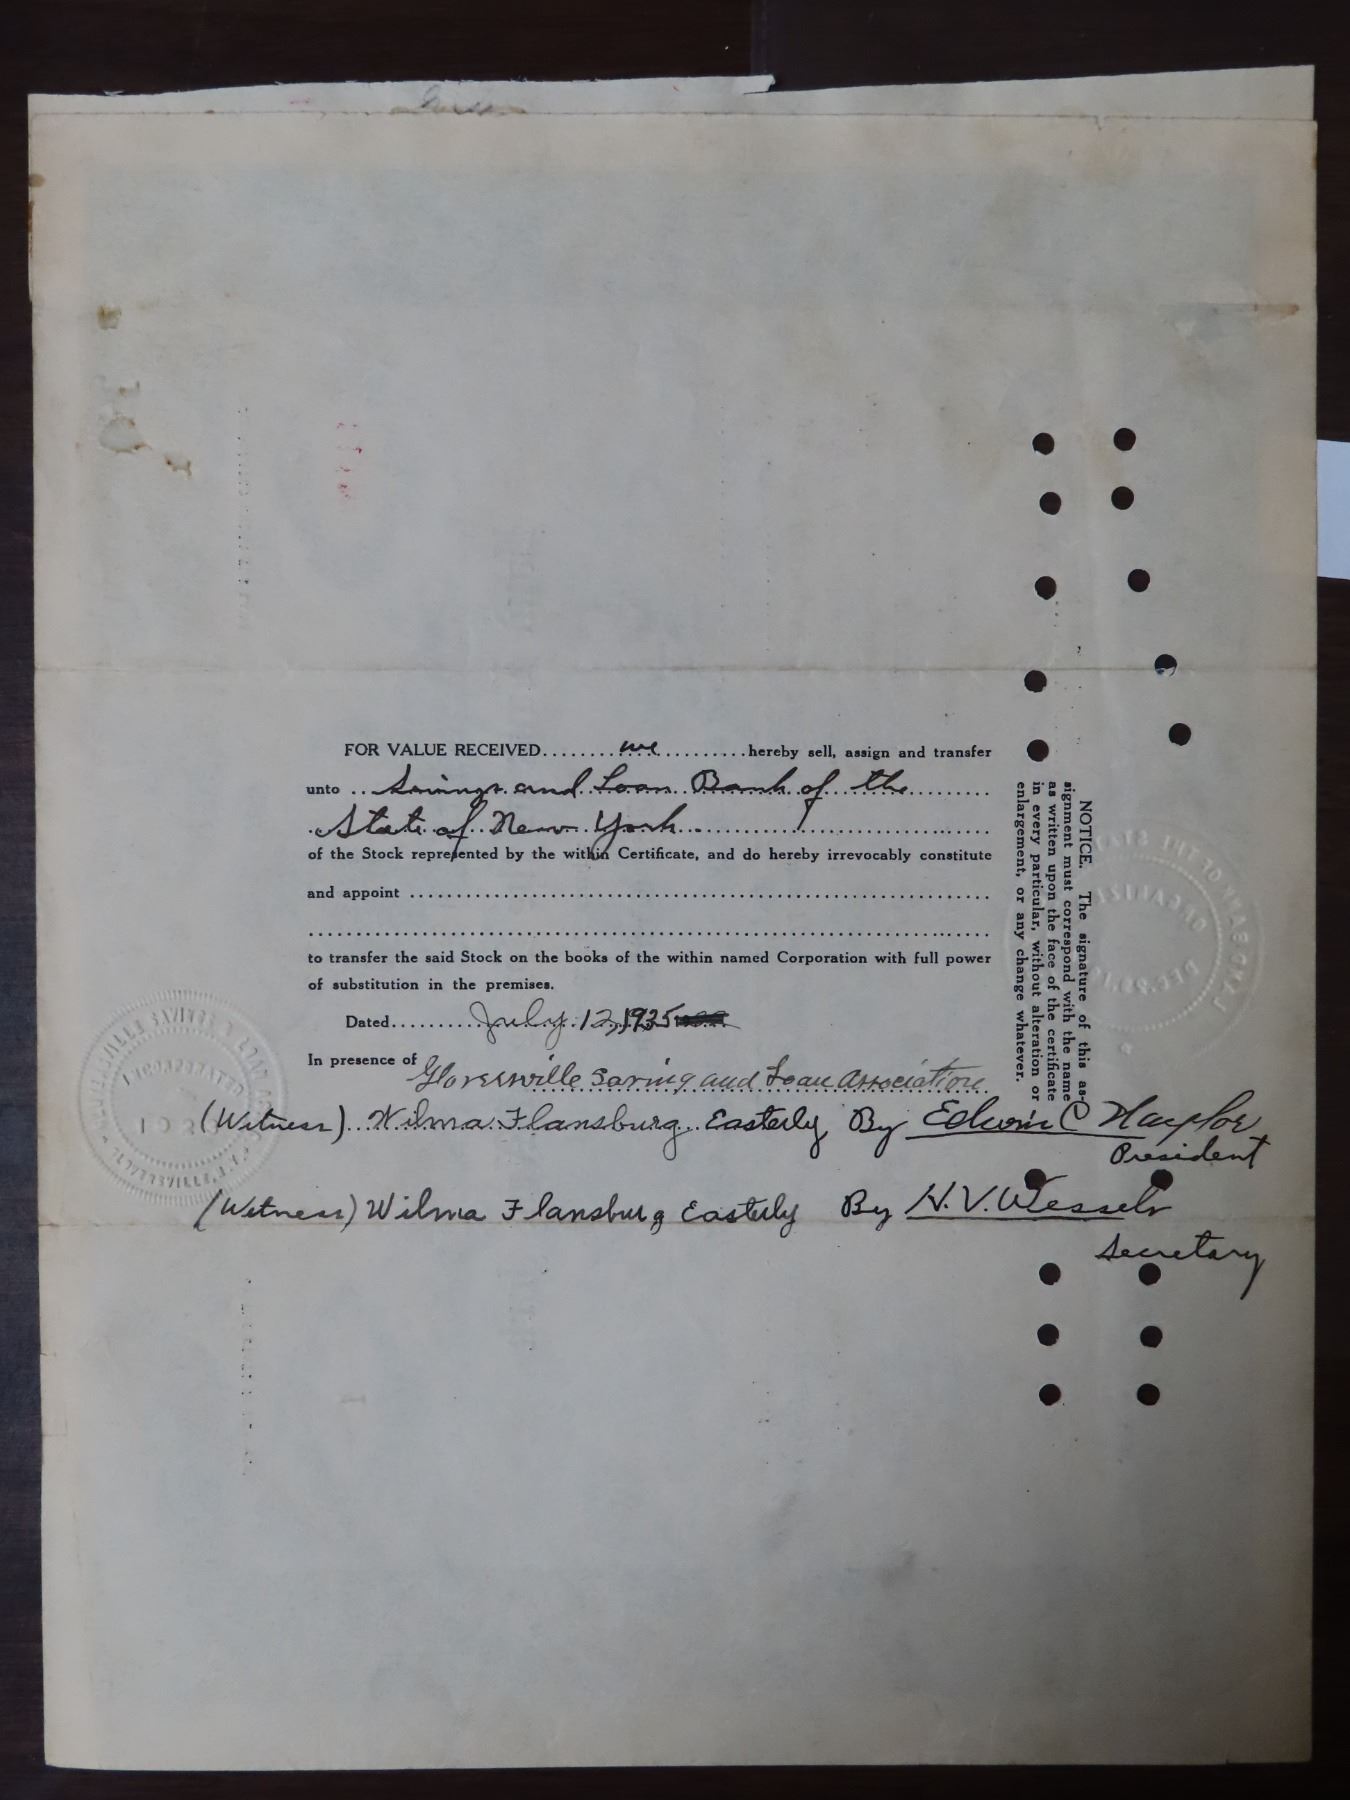 FOR VALUE RECEIVED........we..........hereby sell, assign and transfer
unto ..Savings and Loan Bank of the..........
State of New York..............................
of the Stock represented by the within Certificate, and do hereby irrevocably constitute
and appoint ..............................................................
..............................................................................
to transfer the said Stock on the books of the within named Corporation with full power
of substitution in the premises.
Dated..........July 12, 1935
In presence of Gloversville Saving and Loan Association
(Witness)...Wilma Flansburg Easterly By Edwin C
President
(Witness) Wilma Flansburg Easterly By H. V. Wessels
Secretary
NOTICE. The signature of this as-
signment must correspond with the name
as written upon the face of the certificate
in every particular, without alteration or
enlargement, or any change whatever.
INCORPORATED